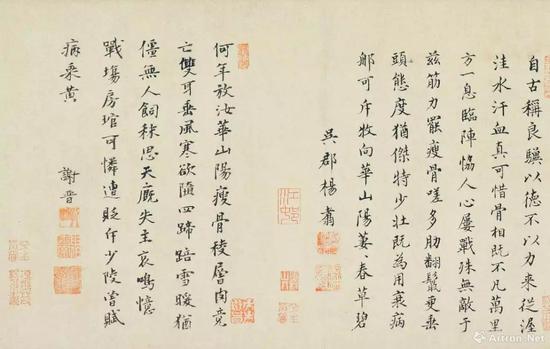 自古稱良驥以德不以力來從渥
洼水汗血真可惜骨相既不凡萬里
方一息臨陣協人心屢戰殊無敵于
兹筋力罷瘦骨嗟多肋翻鬣更垂
頭態度猶傑特少壯既為用衰病
那可斥牧向華山陽萋〻春草碧
吳郡楊翥
何年放汝華山陽瘦骨稜層肉竟
亡雙耳垂風寒欲墮四蹄踣雪暖猶
僵無人飼秣思天廄失主哀鳴憶
戰場房琯可憐遭貶斥少陵曾賦
病乘黃 謝晉
Artron.Net